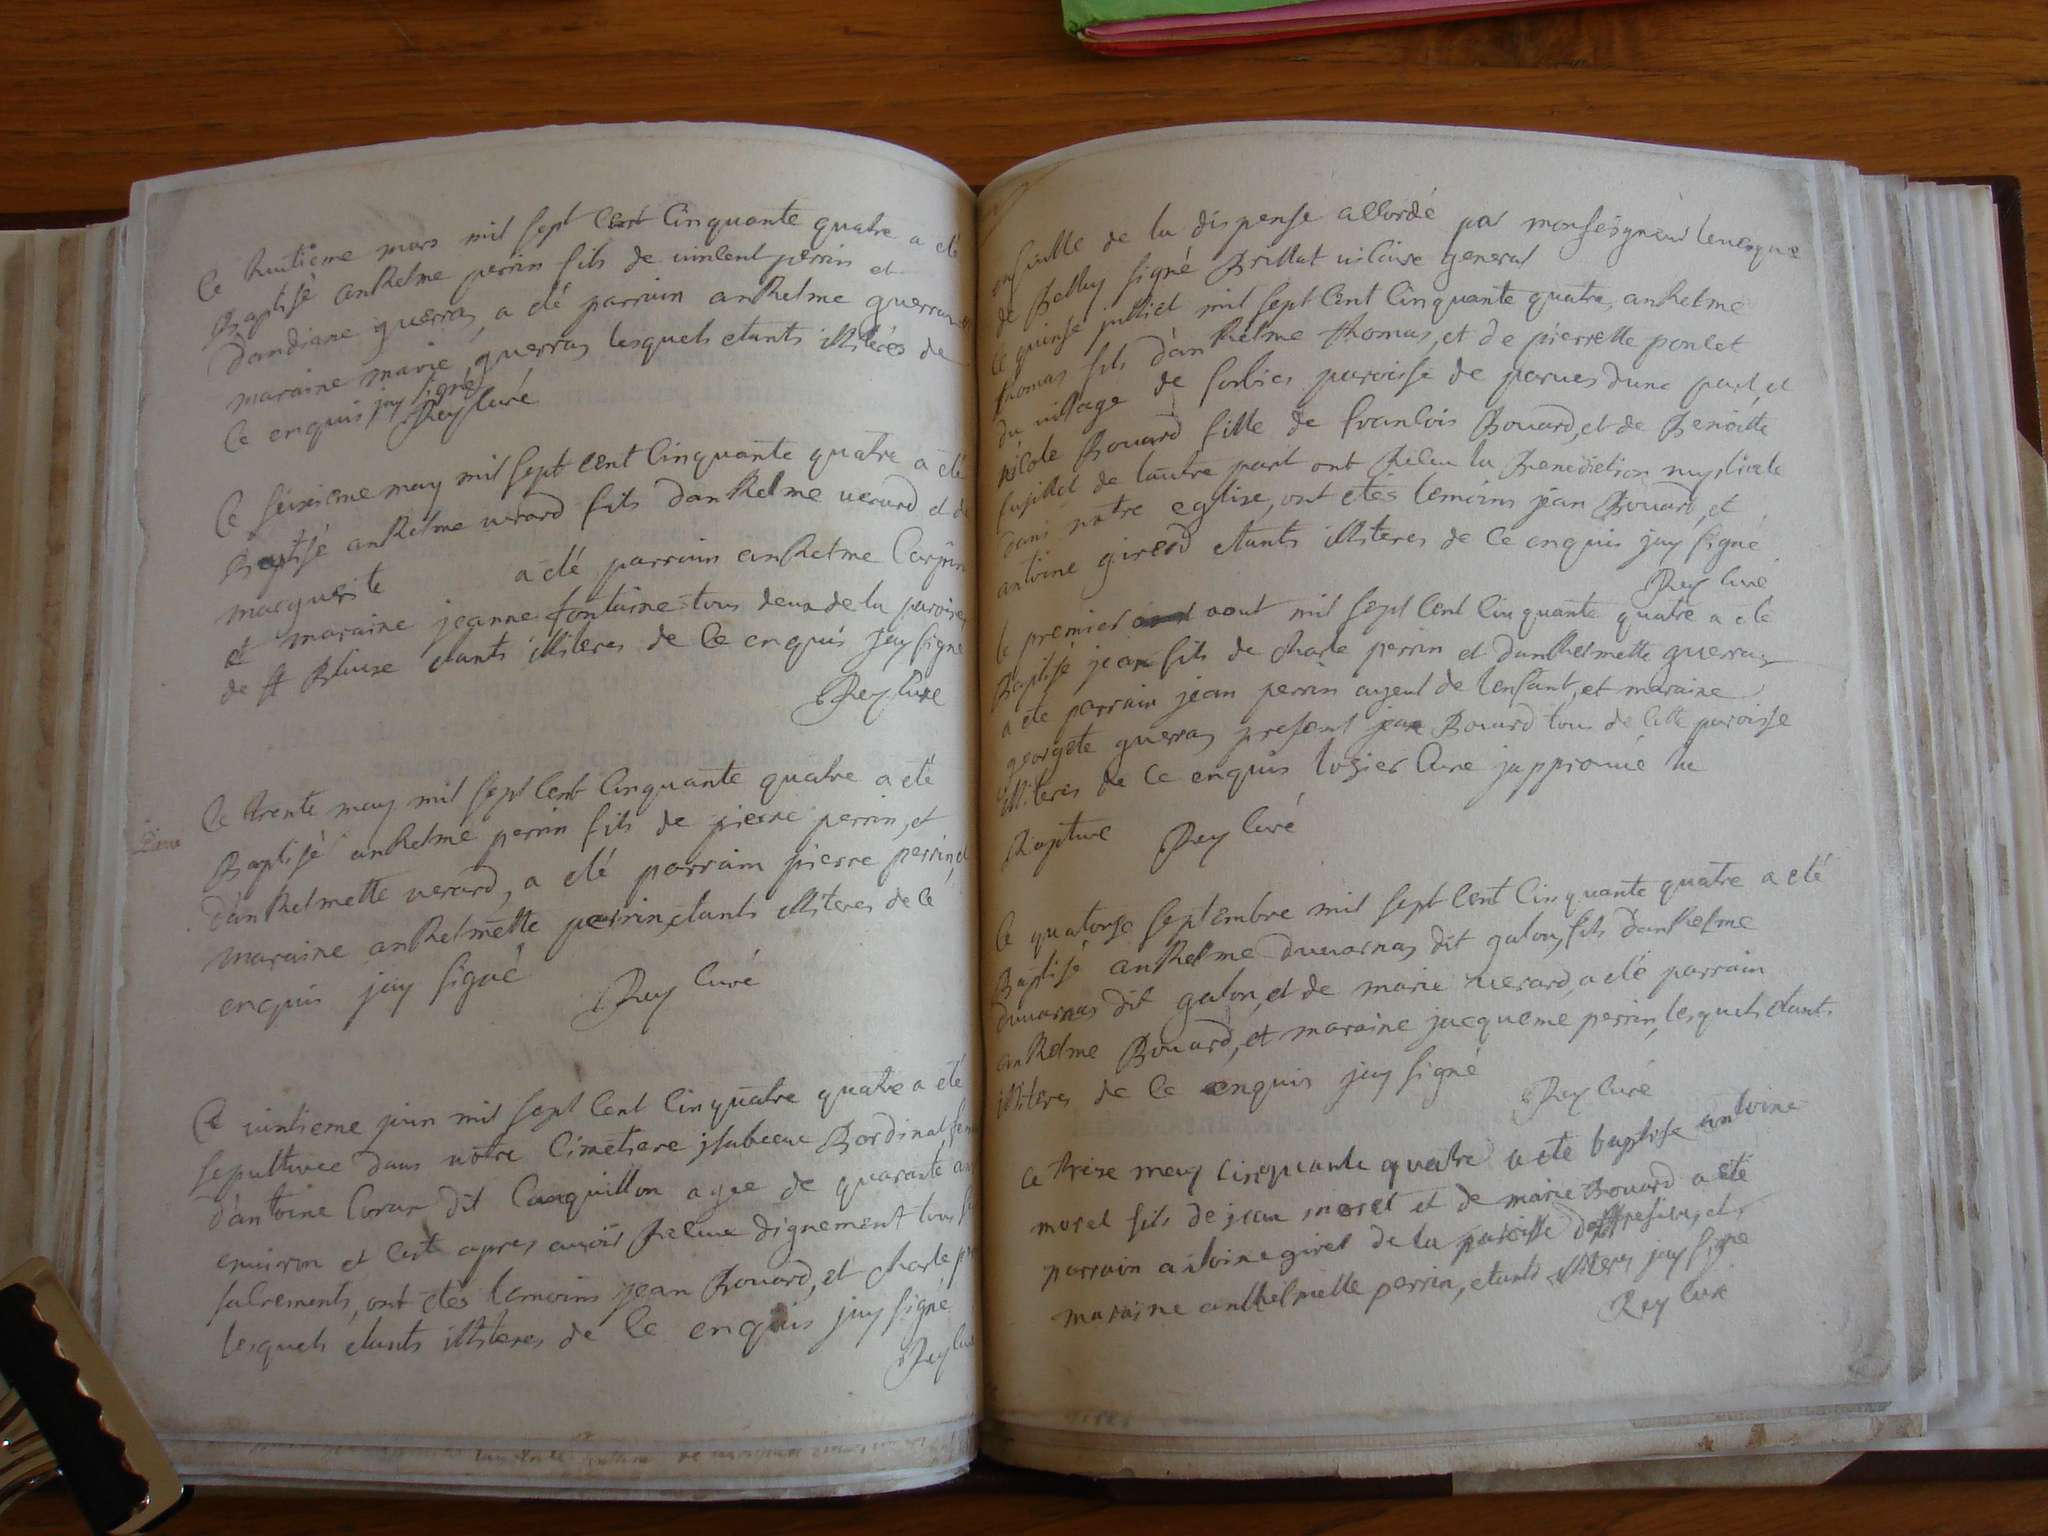 Ce huitieme mars mil sept cent cinquante quatre a eté
Baptisé anthelme perrin fils de vincent perrin et
dandiane guerraz, a eté parrain anthelme guerraz
maraine marie guerraz lesquels etants illiterés de
Ce enquis jay signé
Rey curé
Ce seisieme may mil sept cent cinquante quatre a eté
Baptisé anthelme verard fils danthelme verard et de
marguerite a eté parrain anthelme
et maraine jeanne fontaine tous deux de la paroisse
de st Blaise etants illiteres de Ce enquis jay signé
Rey curé
Ce trente may mil sept cent cinquante quatre a eté
Baptisé anthelme perrin fils de pierre perrin, et
danthelmette verard, a eté parrain pierre perrin, et
maraine anthelmette perrin, etants illiteres de ce
enquis jay signé Rey curé
Ce vintieme juin mil sept cent cinquatre quatre a eté
sepulturee dans notre Cimetiere jsabeau Bordinat
dantoine Coraz dit Canquillon agee de quarante ans
environ et Cest apres avoir Receue dignement tous
sacrements, ont etés temoins jean Bouard, et charle
lesquels etants illiteres de Ce enquis jay signé
Rey curé
ensuitte de la dispense accordé par monseigneur levesque
de Belley signé Brillat vicaire general
Ce quinse juillet mil sept cent cinquante quatre, anthelme
thomas fils danthelme thomas, et de pierrette poncet
du village de paroisse de parves dune part, et
nicole Bouard fille de francois Bouard, et de Benoitte
de lautre part ont Receu la Benediction nuptiale
dans notre eglise, ont etés temoins jean Bouard, et
antoine girerd etants illiteres de Ce enquis jay signé
Rey curé
le premier aout mil sept cent cinquante quatre a eté
Baptisé jean fils de charle perrin et danthelmette guerraz
a eté parrain jean perrin ayeul de lenfant, et maraine
georgete guerraz present jean Bouard tous de cette paroisse
illiteres de Ce enquis curé japprouve la
Rapture Rey curé
Ce quatorse septembre mil sept cent cinquante quatre a eté
Baptisé anthelme duvarnas dit galon, fils danthelme
duvarnas dit galon, et de marie verard, a eté parrain
anthelme Bouard, et maraine jacqueme perrin, lesquels etants
illiteres de Ce enquis jay signé
Rey curé
Ce treze may cinquante quatre a ete baptise antoine
morel fils de jean morel et de marie Bouard a ete
parrain antoine giret de la paroisse et
maraine anthelmette perrin, etants illiteres jay signe
Rey cure